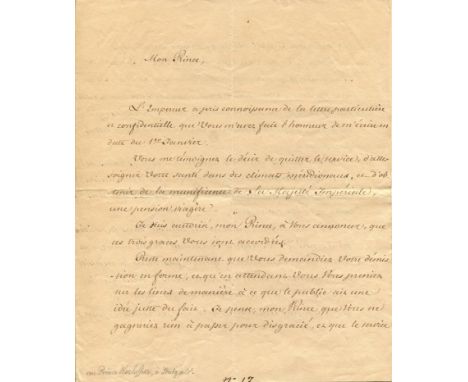 Mon Prince,
L'Empereur a pris connoissance de la lettre particulière
et confidentielle que Vous m'avez fait l'honneur de m'écrire en
date du 1er Janvier.
Vous me témoignez le désir de quitter le service, d'aller
soigner Votre santé dans des climats méridionaux, et d'ob-
tenir de la munificence de Sa Majesté Impériale,
une pension viagère.
Je suis autorisé, mon Prince, à Vous annoncer, que
ces trois graces Vous sont accordées.
Reste maintenant que Vous demandiez Votre démis-
sion en forme, et qu'en attendant Vous Vous preniez
sur les lieux de manière à ce que le public ait une
idée juste du fait. Je pense, mon Prince que Vous ne
gagneriez rien à passer pour disgracié, et que le
au Prince à
No 17